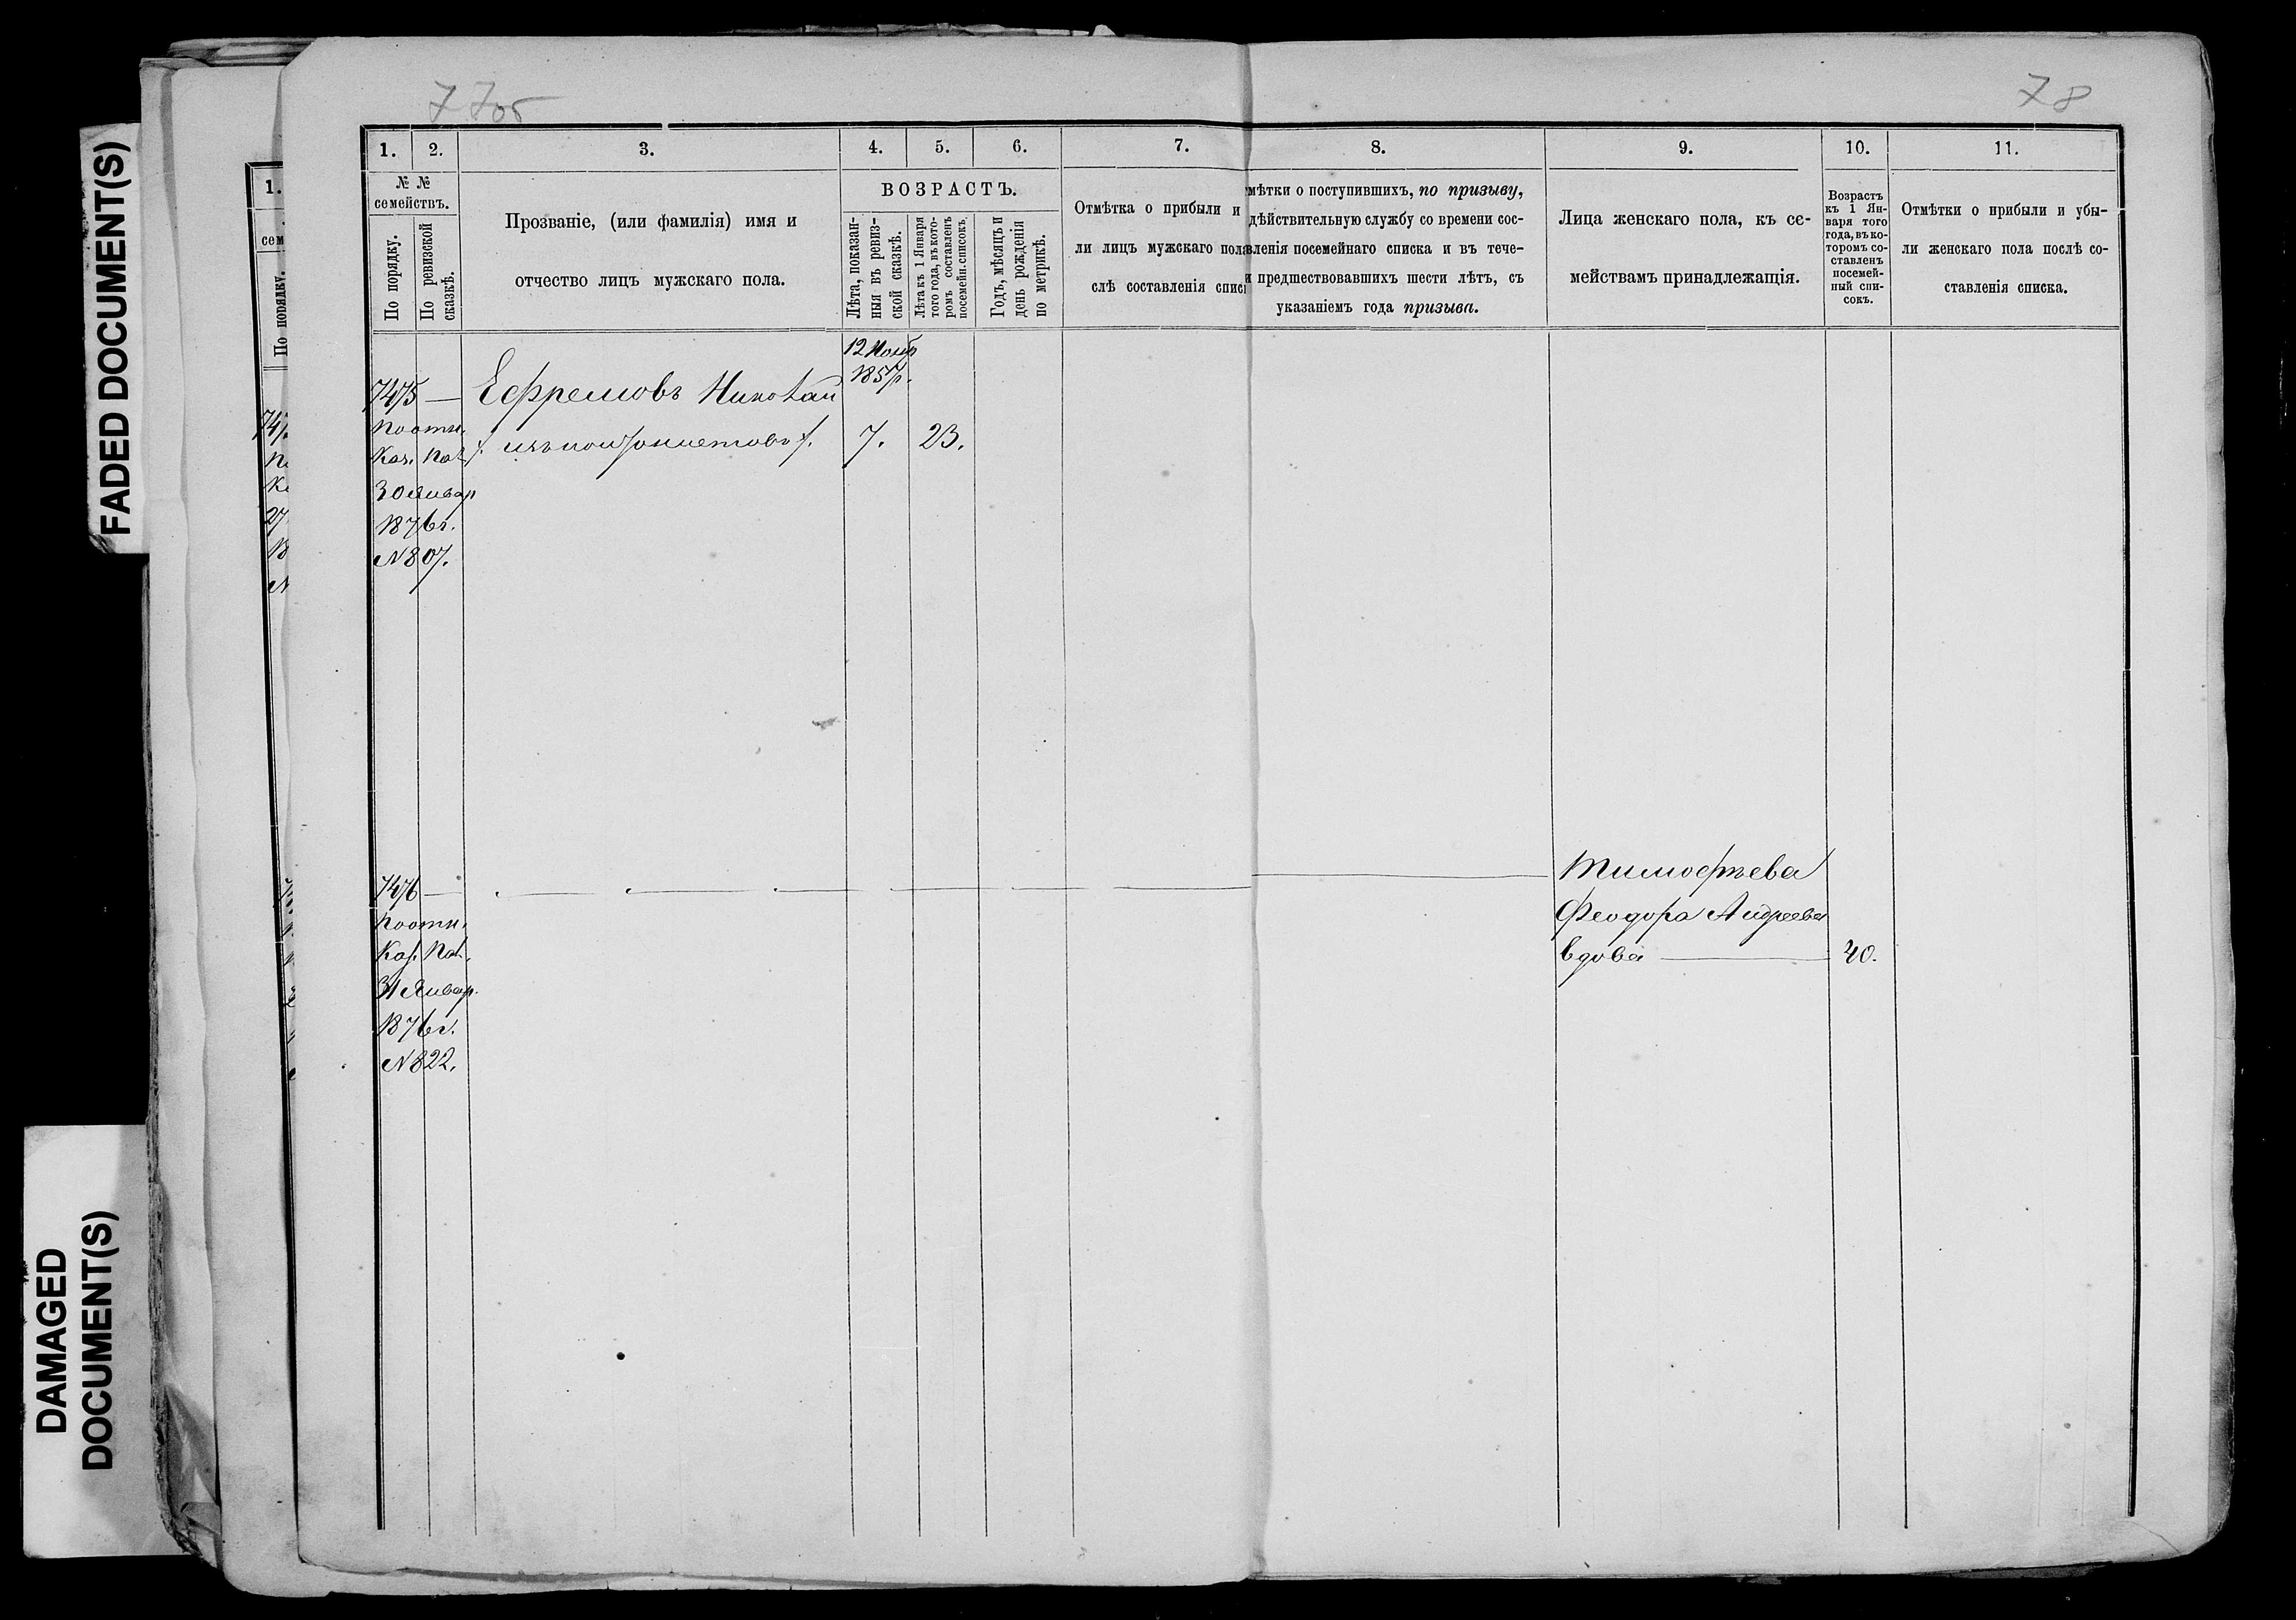 FADED DOCUMENT(S)
DAMAGED
DOCUMENT(S)
77об
78
1.
сем
По порядку.
1. 2. 3. 4. 5. 6. 7. 8. 9. 10. 11.
№ №
семействъ.
По порядку.
По ревизской
сказкѣ.
Прозваніе, (или фамилія) имя и
отчество лицъ мужскаго пола.
ВОЗРАСТЪ.
Лѣта, показан-
ныя въ ревиз-
ской сказкѣ.
Лѣта къ 1 Января
того года, въ кото-
ромъ составленъ
посемейн. списокъ.
Годъ, мѣсяцъ и
день рожденія
по метрикѣ.
Отмѣтка о прибыли и
ли лицъ мужскаго пола
слѣ составленія спис
мѣтки о поступившихъ, по призыву,
дѣйствительную службу со времени сос-
вленія посемейнаго списка и въ тече-
и предшествовавшихъ шести лѣтъ, съ
указаніемъ года призыва.
Лица женскаго пола, къ се-
мействамъ принадлежащія.
Возрастъ
къ 1 Ян-
варя того
года, въ ко-
торомъ со-
ставленъ
посемей-
ный спи-
сокъ.
Отмѣтки о прибыли и убы-
ли женскаго пола послѣ со-
ставленія списка.
12 Нояб
1857г.
7475 — Ефремовъ Николай
По отн.
Каз. Пал.
7. 23.
30 Январ
1876г.
№807.
7476 —
По отн.
Каз. Пал.
31 Январ.
1876г.
№822.
Тимофѣева
Феодора Андреева
вдова — 40.